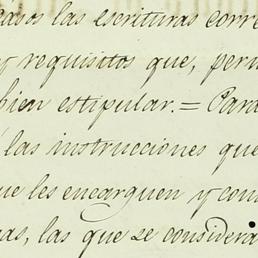 casos las escrituras corre
y requisitos que, peru
bien estipular.= Para
las instrucciones que
que les encarguen y con
as, las que se considera